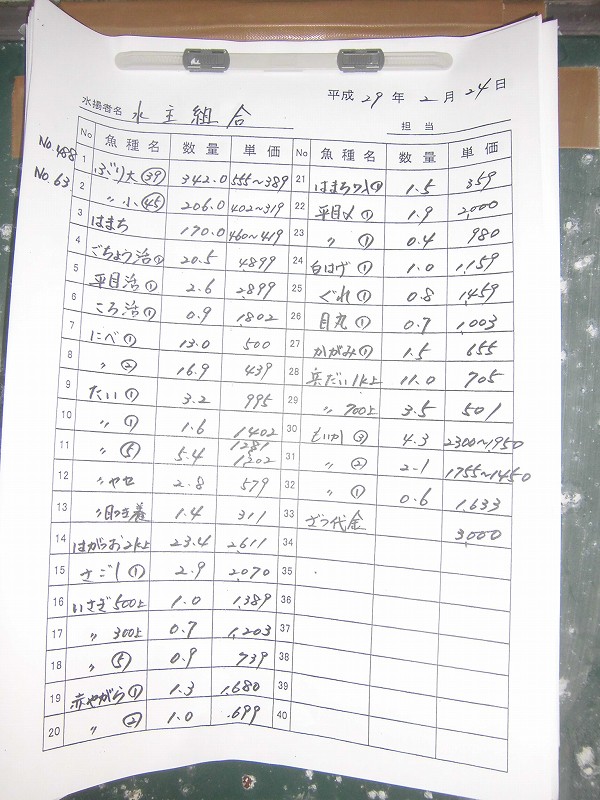 平成 29 年 2 月 24 日
水揚者名 水主組合
担当
No.488
No.63
No 魚種名 数量 単価
1 ぶり大 (39) 342.0 555~389
2 〃 小 (45) 206.0 402~319
3 はまち 170.0 460~419
4 ごちょう活① 20.5 4899
5 平目活① 2.6 2,899
6 ころ活① 0.9 1,802
7 にべ① 13.0 500
8 〃 ② 16.9 439
9 たい① 3.2 995
10 〃 ① 1.6 1402
11 〃 ⑤ 5.4 1281 1202
12 〃ヤセ 2.8 579
13 〃 1.4 311
14 はがつお2k上 23.4 2611
15 さごし① 2.9 2,070
16 いさぎ500上 1.0 1,389
17 〃 300上 0.7 1,203
18 〃 ⑤ 0.9 739
19 赤やがら① 1.3 1,680
20 〃 ② 1.0 .699
No 魚種名 数量 単価
21 はまち 1.5 359
22 平目〆① 1.9 2,000
23 〃 ① 0.4 980
24 白はげ① 1.0 1,159
25 ぐれ① 0.8 1,459
26 目丸① 0.7 1,003
27 かがみ① 1.5 655
28 兵だい1k上 11.0 705
29 〃 700上 3.5 501
30 もいか③ 4.3 2300~1,950
31 〃 ② 2.1 1755~1450
32 〃 ① 0.6 1,633
33 ざつ代金 3,000
34
35
36
37
38
39
40